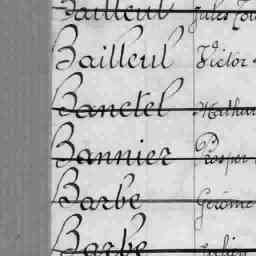 Bailleul Jules
Bailleul Victor
Banctel Mathur
Bannier Prosper
Barbe Gérôme
Barbe